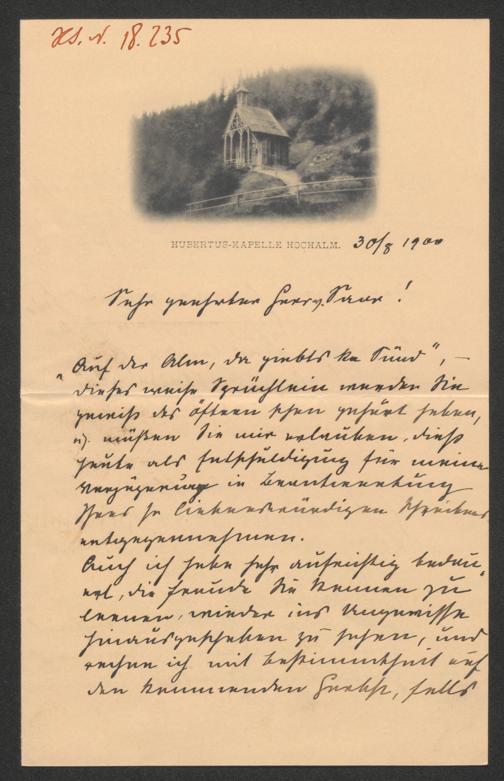 H.S. N. 18.235
HUBERTUS-KAPELLE HOCHALM.
30/8 1900
Sehr geehrter Herr v. Saar!
„Auf der Alm, da giebts ka Sünd", –
dieses weise Sprüchlein werden Sie
gewiß des öftern schon gehört haben,
u. müßen Sie mir erlauben, dieß
heute als Entschuldigung für meine
Verzögerung in Beantwortung
Ihres so liebenswürdigen Schreibens
entgegennehmen.
Auch ich habe sehr aufrichtig bedau-
ert, die Freude Sie kennen zu
lernen, wieder ins Ungewisse
hinausgeschoben zu sehen, und
rechne ich mit Bestimmtheit auf
den kommenden Herbst, falls